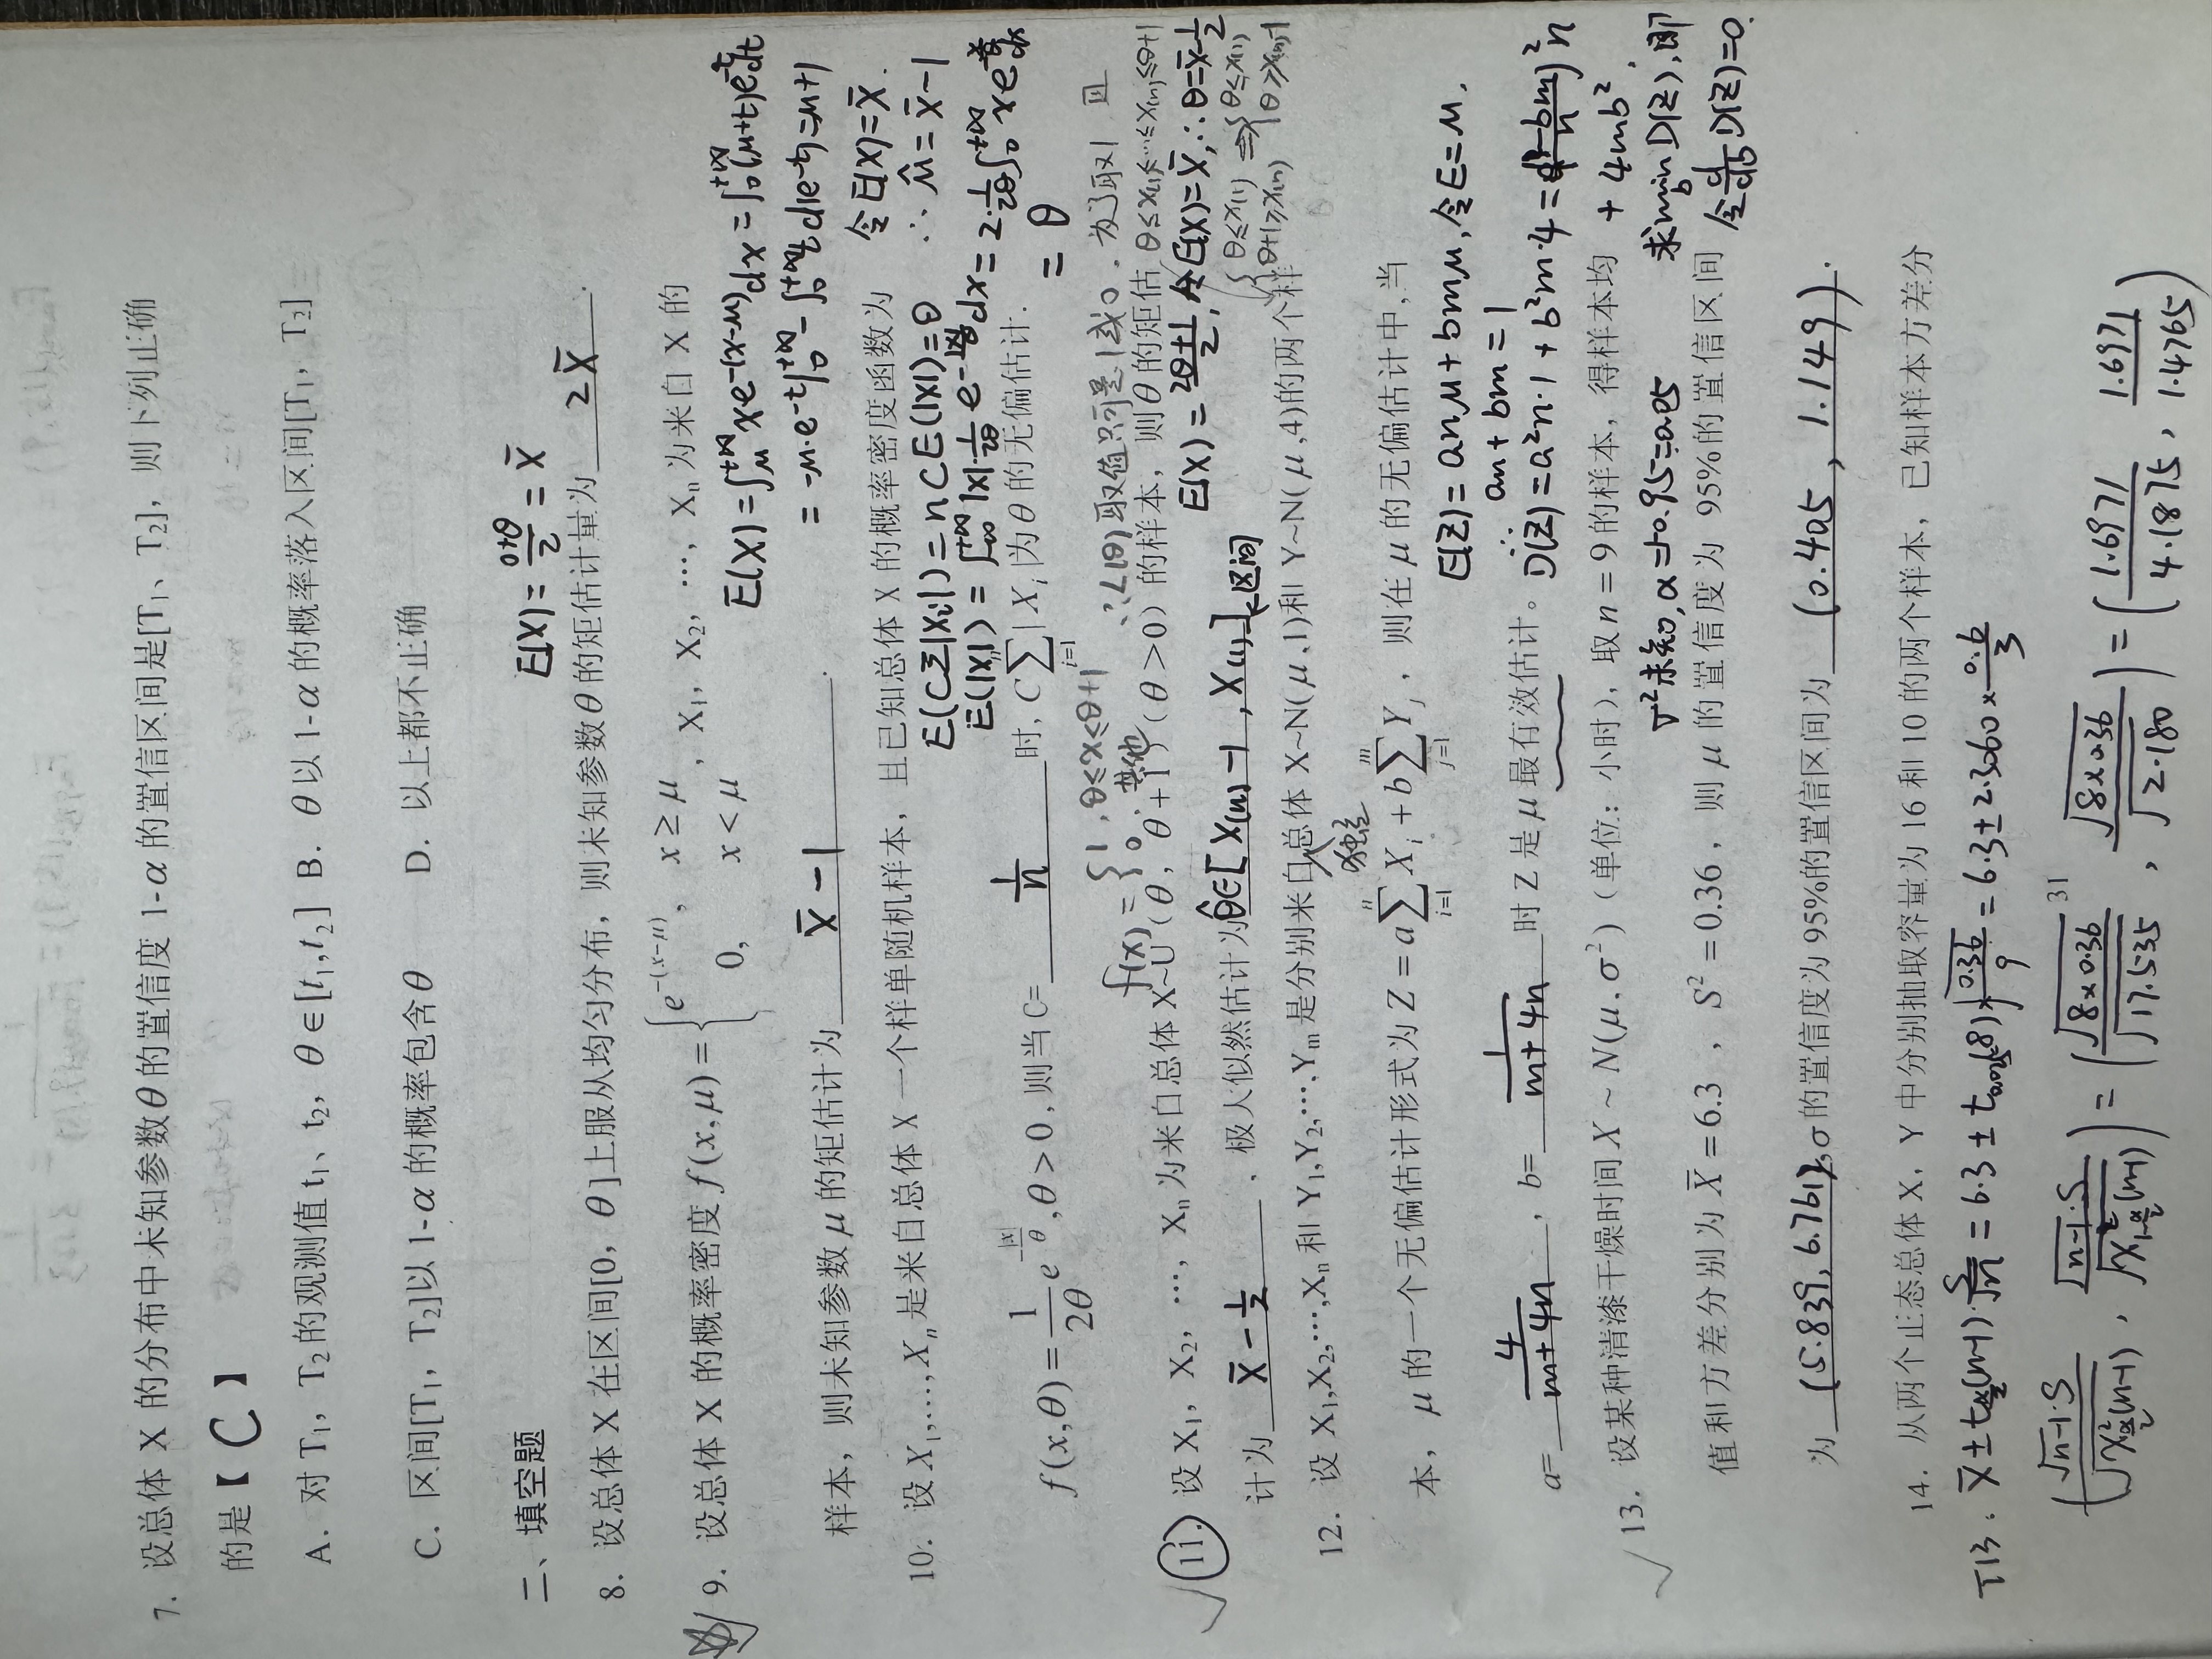 7. 设总体 X 的分布中未知参数θ的置信度 1-α 的置信区间是[T₁、T₂]，则下列正确
的是【 C 】
A. 对 T₁，T₂的观测值 t₁、t₂，θ∈[t₁,t₂] B. θ以 1-α 的概率落入区间[T₁，T₂]
C. 区间[T₁，T₂]以 1-α 的概率包含θ D. 以上都不正确
二、填空题
E(X) = (0+θ)/2 = X̄
8. 设总体 X 在区间[0，θ]上服从均匀分布，则未知参数θ的矩估计量为 2X̄ .
9. 设总体 X 的概率密度 f(x,μ) = { e^{-(x-μ)}, x ≥ μ ; 0, x < μ ，X₁，X₂，…，Xₙ为来自 X 的
E(X) = ∫_μ^{+∞} xe^{-(x-μ)}dx = ∫_0^{+∞}(μ+t)e^{-t}dt
= -μ·e^{-t}|_0^{+∞} - ∫_0^{+∞} t d(e^{-t}) = μ+1
样本，则未知参数 μ 的矩估计为 X̄ - 1 .
令E(X)=X̄.
∴ μ̂ = X̄-1
10. 设 X₁,…,Xₙ是来自总体 X 一个样单随机样本，且已知总体 X 的概率密度函数为
E(CΣ|Xᵢ|) = nCE(|X|) = θ
E(|X|) = ∫_{-∞}^{+∞} |x|·1/(2θ) e^{-|x|/θ}dx = 2·1/(2θ)∫_0^{+∞} xe^{-x/θ}dx
= θ
f(x,θ) = 1/(2θ) e^{-|x|/θ}, θ > 0, 则当 C= 1/n 时, C∑_{i=1}^{n}|Xᵢ|为θ的无偏估计.
f(x) = { 1, θ≤x≤θ+1 ; 0, 其他
∴L(θ)取值只可是1或0. 为了取1 且
θ≤x₍₁₎≤…≤x₍ₙ₎≤θ+1
11. 设 X₁，X₂，…，Xₙ为来自总体 X~U（θ，θ+1）（θ>0）的样本，则θ的矩估
E(X) = (2θ+1)/2, 令E(X)=X̄, ∴θ=X̄-1/2
计为 X̄ - 1/2 ，极大似然估计为 θ̂∈[X₍ₙ₎-1, X₍₁₎] ←区间
{ θ≤x₍₁₎ ; θ+1≥x₍ₙ₎ ⇒ { θ≤x₍₁₎ ; θ≥x₍ₙ₎-1
12. 设 X₁,X₂,…,Xₙ和 Y₁,Y₂,…,Yₘ是分别来自总体 X~N(μ,1)和 Y~N(μ,4)的两个样
独立
本，μ的一个无偏估计形式为 Z = a∑_{i=1}^{n}Xᵢ + b∑_{j=1}^{m}Yⱼ，则在 μ 的无偏估计中,当
E(Z) = anμ + bmμ, 令E=μ,
∴ an + bm = 1
a= 4/(m+4n) ，b= 1/(m+4n) 时 Z 是 μ 最有效估计。
D(Z) = a²n·1 + b²m·4 = ((1-bm)/n)²n
+ 4mb².
13. 设某种清漆干燥时间 X ~ N(μ,σ²)（单位：小时），取 n = 9 的样本，得样本均
σ²未知, α=1-0.95=0.05
求min_b D(Z), 即
值和方差分别为 X̄ = 6.3 ，S² = 0.36，则 μ 的置信度为 95%的置信区间
令 d/db D(Z)=0.
为 (5.839, 6.761) ,σ的置信度为 95%的置信区间为 (0.405, 1.149) .
14. 从两个正态总体 X，Y 中分别抽取容量为 16 和 10 的两个样本，已知样本方差分
T13: X̄ ± t_{α/2}(n-1)·S/√n = 6.3 ± t_{0.025}(8)·√(0.36/9) = 6.3 ± 2.3060 × 0.6/3
31
(√(n-1)·S/√(χ²_{α/2}(n-1)), √(n-1)·S/√(χ²_{1-α/2}(n-1))) = (√(8×0.36)/√17.535, √(8×0.36)/√2.180) = (1.6971/4.1875, 1.6971/1.4765)